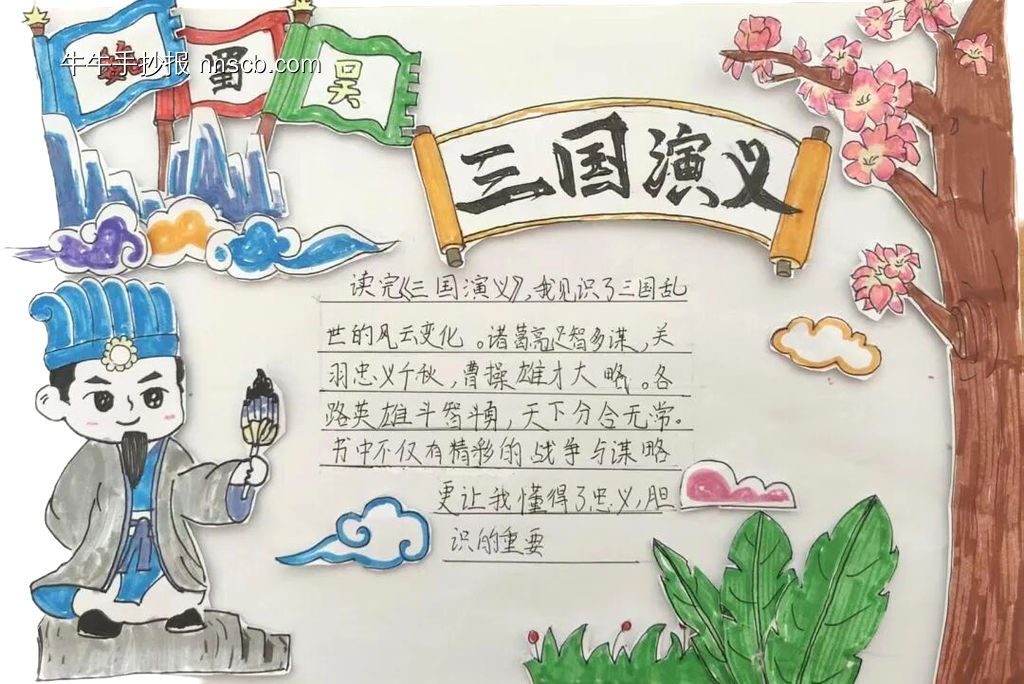 牛牛手抄报 nnscb.com
蜀
吴
三国演义
读完《三国演义》,我见识了三国乱
世的风云变化。诸葛亮足智多谋,关
羽忠义千秋,曹操雄才大略。各
路英雄斗智斗勇,天下分合无常。
书中不仅有精彩的战争与谋略
更让我懂得了忠义,胆
识的重要